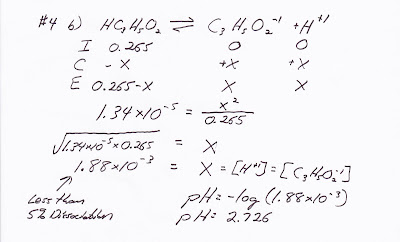 #4 b) HC₃H₅O₂ ⇌ C₃H₅O₂⁻¹ + H⁺¹
I 0.265 0 0
C -X +X +X
E 0.265-X X X
1.34×10⁻⁵ = X²/0.265
√(1.34×10⁻⁵×0.265) = X
1.88×10⁻³ = X = [H⁺¹] = [C₃H₅O₂⁻¹]
Less than
5% Dissociation
pH = -log(1.88×10⁻³)
pH = 2.726